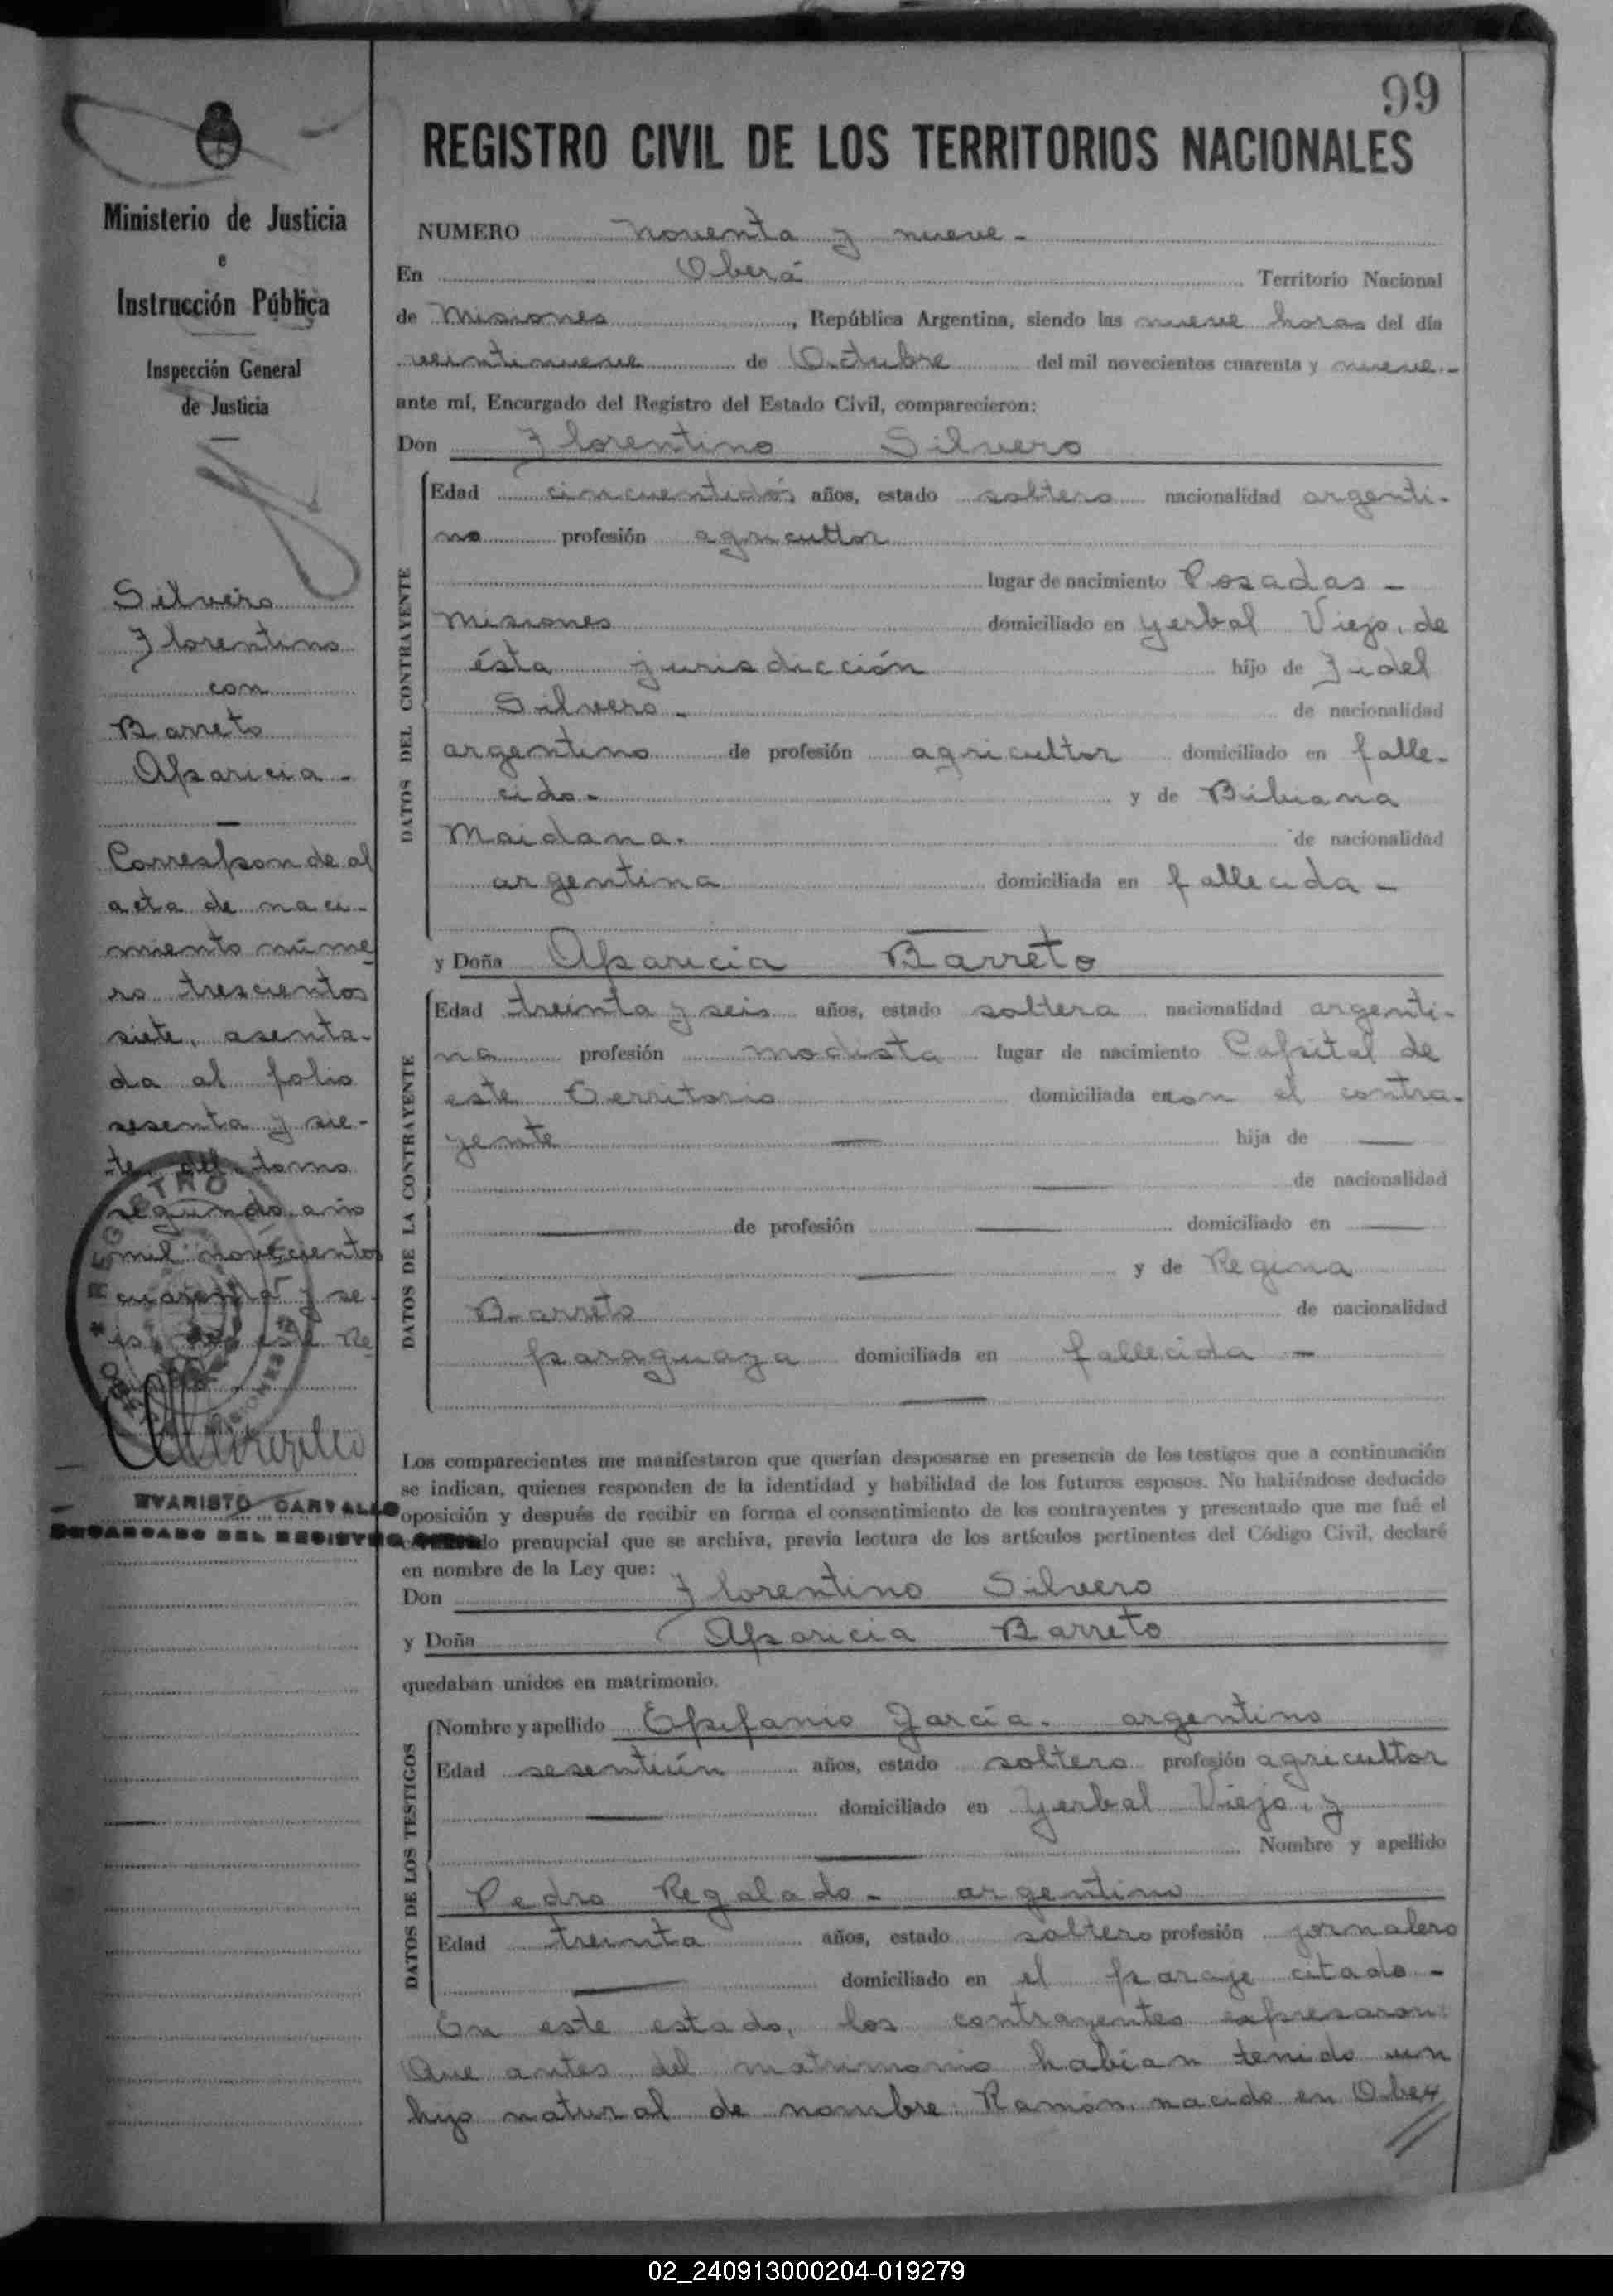 99
REGISTRO CIVIL DE LOS TERRITORIOS NACIONALES
Ministerio de Justicia
e
Instrucción Pública
Inspección General
de Justicia
Silvero
Florentino
con
Barreto
Aparicia -
Corresponde al
acta de naci-
miento núme
ro trescientos
siete, asenta-
da al folio
sesenta y sie-
te del tomo
segundo, año
mil novecientos
cuarenta y se-
is de este Re
EVARISTO CARVALLO
ENCARGADO DEL REGISTRO
NUMERO noventa y nueve -
En Oberá Territorio Nacional
de Misiones, República Argentina, siendo las nueve horas del día
veintinueve de Octubre del mil novecientos cuarenta y nueve.-
ante mí, Encargado del Registro del Estado Civil, comparecieron:
Don Florentino Silvero
DATOS DEL CONTRAYENTE
Edad cincuentidós años, estado soltero nacionalidad argenti-
no profesión agricultor
lugar de nacimiento Posadas -
Misiones domiciliado en Yerbal Viejo, de
ésta jurisdicción hijo de Fidel
Silvero - de nacionalidad
argentino de profesión agricultor domiciliado en falle-
cido - y de Bibiana
Maidana. de nacionalidad
argentina domiciliada en fallecida -
y Doña Aparicia Barreto
DATOS DE LA CONTRAYENTE
Edad treinta y seis años, estado soltera nacionalidad argenti-
na profesión modista lugar de nacimiento Capital de
este Territorio domiciliada en con el contra-
yente — hija de —
— de nacionalidad
— de profesión — domiciliado en —
— y de Regina
Barreto de nacionalidad
paraguaya domiciliada en fallecida -
Los comparecientes me manifestaron que querían desposarse en presencia de los testigos que a continuación
se indican, quienes responden de la identidad y habilidad de los futuros esposos. No habiéndose deducido
oposición y después de recibir en forma el consentimiento de los contrayentes y presentado que me fué el
prenupcial que se archiva, previa lectura de los artículos pertinentes del Código Civil, declaré
en nombre de la Ley que:
Don Florentino Silvero
y Doña Aparicia Barreto
quedaban unidos en matrimonio.
DATOS DE LOS TESTIGOS
Nombre y apellido Epifanio García. argentino
Edad sesentiún años, estado soltero profesión agricultor
— domiciliado en Yerbal Viejo, y
— Nombre y apellido
Pedro Regalado - argentino
Edad treinta años, estado soltero profesión jornalero
— domiciliado en el paraje citado -
En este estado, los contrayentes expresaron:
Que antes del matrimonio habían tenido un
hijo natural de nombre: Ramón, nacido en Ober
02_240913000204-019279